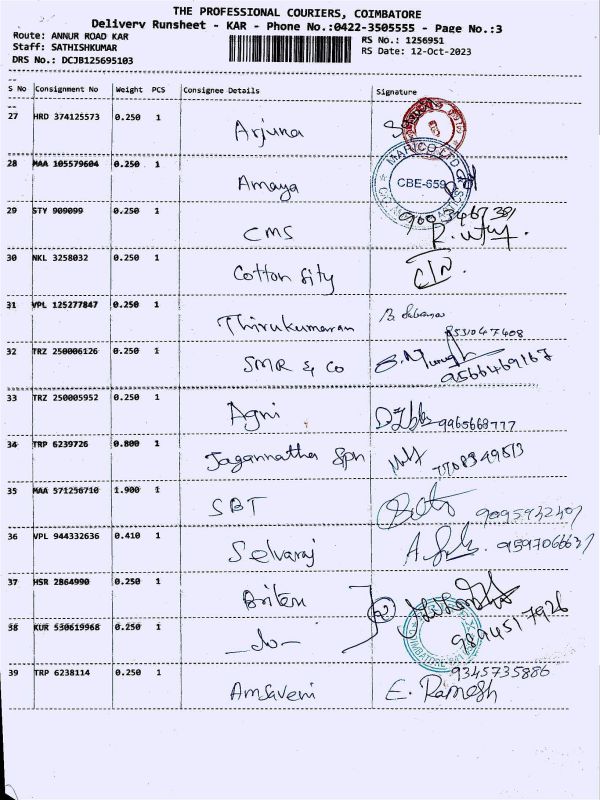 THE PROFESSIONAL COURIERS, COIMBATORE
Delivery Runsheet - KAR - Phone No.:0422-3505555 - Page No.:3
Route: ANNUR ROAD KAR
Staff: SATHISHKUMAR
DRS No.: DCJB125695103
RS No.: 1256951
RS Date: 12-Oct-2023
S No Consignment No Weight PCS Consignee Details Signature
27 HRD 374125573 0.250 1 Arjuna
28 MAA 105579604 0.250 1 Amaya
MARICO LTD
CBE-659
29 STY 909099 0.250 1 CMS
30 NKL 3258032 0.250 1 Cotton Sity
31 VPL 125277847 0.250 1 Thirukumaran
32 TRZ 250006126 0.250 1 SMR & Co
9566469167
33 TRZ 250005952 0.250 1 Agni
9965668777
34 TRP 6239726 0.800 1 Jagannatha Spn
7708349513
35 MAA 571256710 1.900 1 SBT
36 VPL 944332636 0.410 1 Selvaraj
37 HSR 2864990 0.250 1 Briten
9894517926
38 KUR 530619968 0.250 1 -do-
9345735886
39 TRP 6238114 0.250 1 Amsaveni E. Ramesh